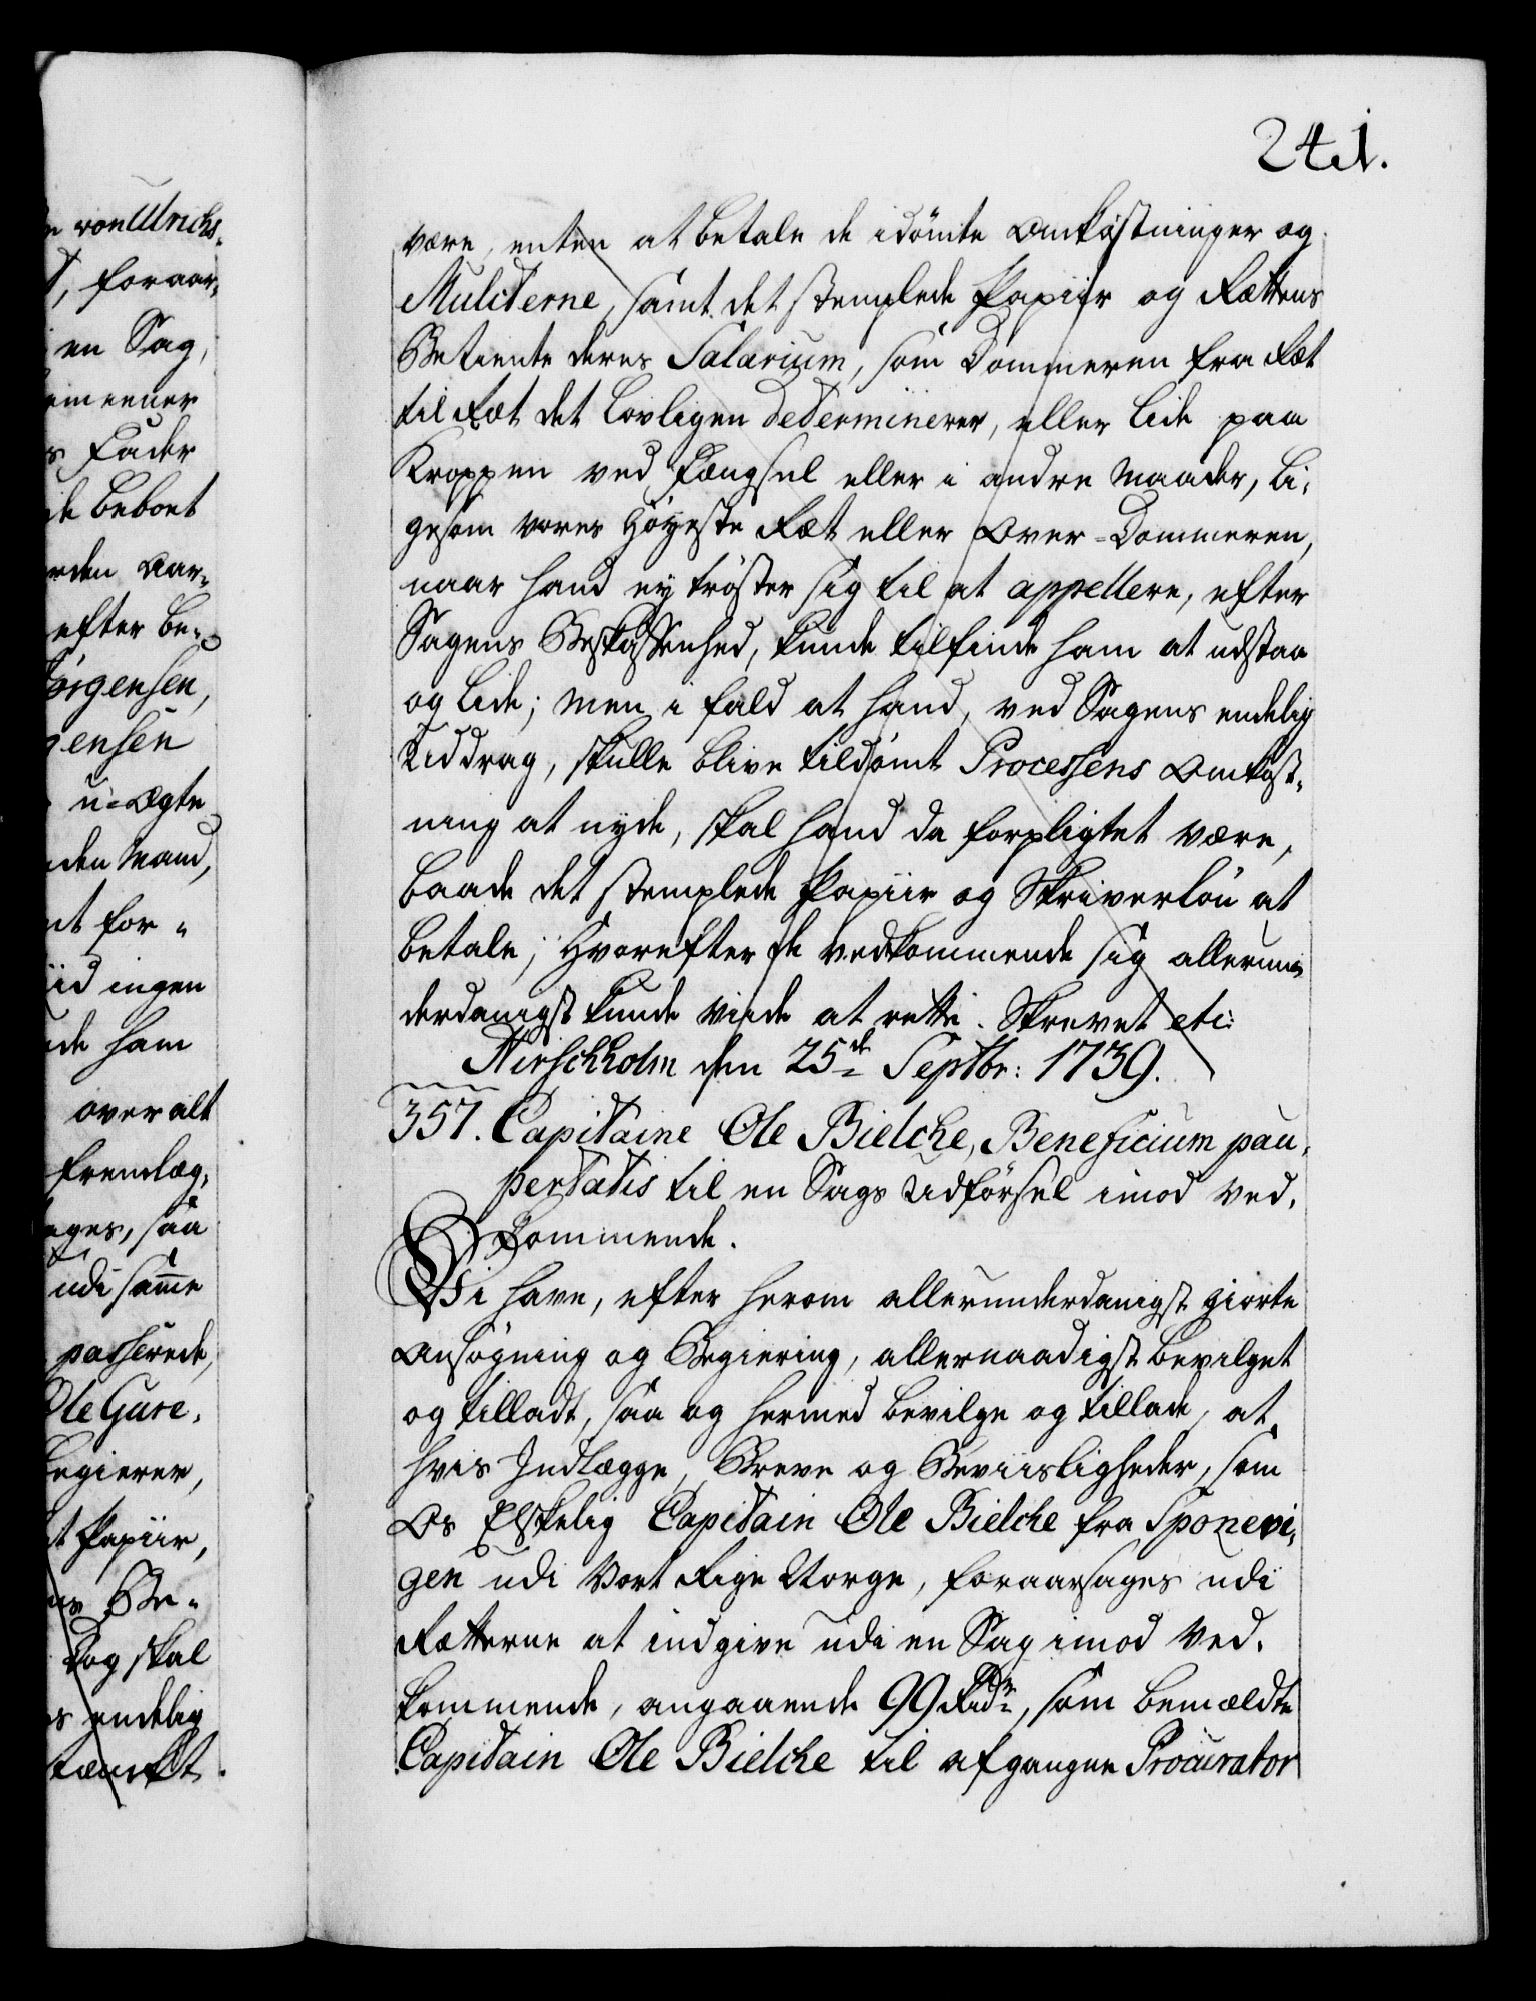 241.
være, enten at betale de idömte Omkostninger og
Mulcterne, samt det stemplede Papiir og Rættens
Betiente deres Salarium, som Dommeren fra Ræt
til Ræt det lovligen determinerer, eller lide paa
Kroppen ved Fængsel eller i andre Maader, li-
gesom vores Höyeste Ræt eller Over-Dommeren,
naar hand ey tröster sig til at appellere, efter
Sagens Beskaffenhed, kunde tilfinde ham at udstaa
og lide; men i fald at hand, ved Sagens endelig
Uddrag, skulle blive tildömt Processens Omkost-
ning at nyde, skal hand da forpligtet være,
baade det stemplede Papiir og Skriverlön at
betale; Hvorefter de vedkommende sig allerun-
derdanigst kunde viide at rette. Skrevet etc:
Hirschholm den 25de Septbr: 1739.
357. Capitaine Ole Bielche, Beneficium pau-
pertatis til en Sags Udförsel imod Ved-
kommende.
Vi have, efter herom allerunderdanigst giorte
Ansögning og Begiering, allernaadigst bevilget
og tilladt, saa og hermed bevilge og tillade, at
hvis Indlægge, Breve og Beviisligheder, som
Os Elskelig Capitain Ole Bielche fra Sponevi-
gen udi Vort Rige Norge, foraarsages udi
Rætterne at indgive udi en Sag imod Ved-
kommende, angaaende 99 Rdr, som bemældte
Capitain Ole Bielche til afgangne Procurator
von Ulrichs-
foraar-
en Sag,
Fader
beboet
Aar-
efter be-
Jörgensen,
gensen
u-ægte
Mand,
for-
ingen
ham
over alt
fremlæg-
saa
udi samme
passerede,
Ole Gure,
begierer,
Papiir,
Be-
Dog skal
endelig